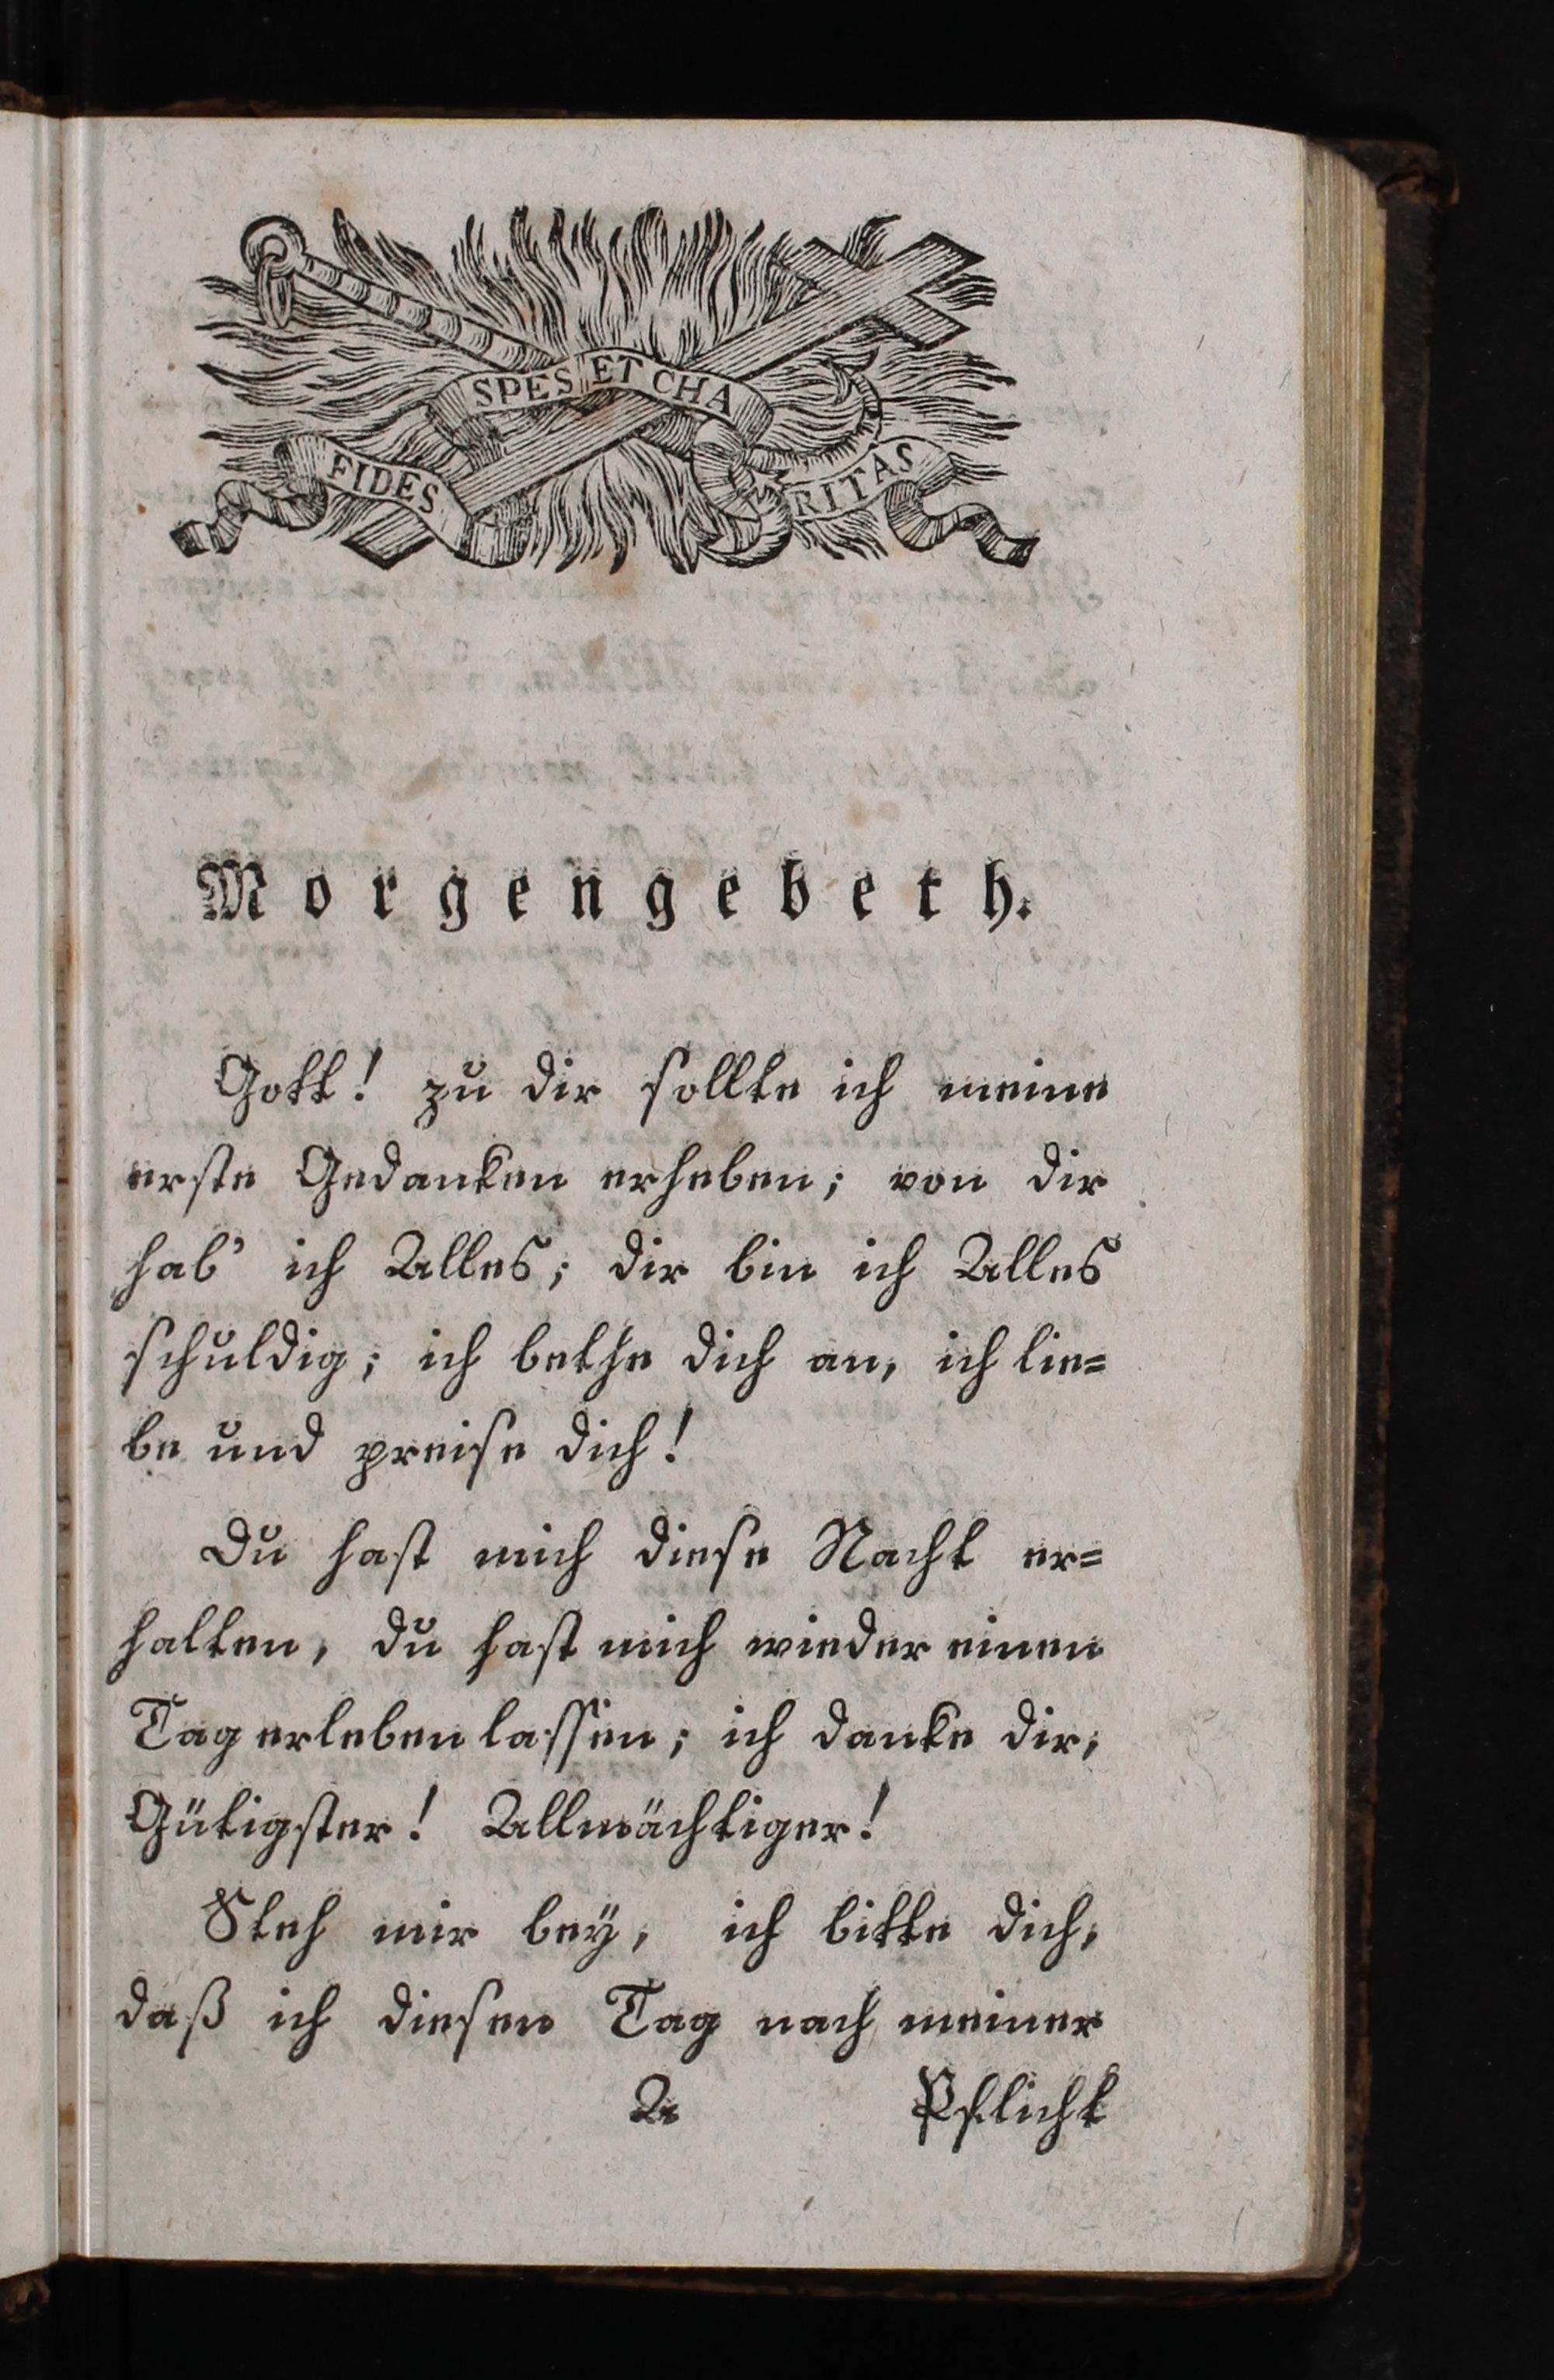 SPES ET CHA
FIDES
RITAS
Morgengebeth.
Gott! zu dir sollte ich meine
erste Gedanken erheben; von dir
hab' ich Alles; dir bin ich Alles
schuldig; ich bethe dich an, ich lie=
be und preise dich!
Du hast mich diese Nacht er=
halten, du hast mich wieder einen
Tag erleben lassen; ich danke dir,
Gütigster! Allmächtiger!
Steh mir bey, ich bitte dich,
daß ich diesen Tag nach meiner
A Pflicht